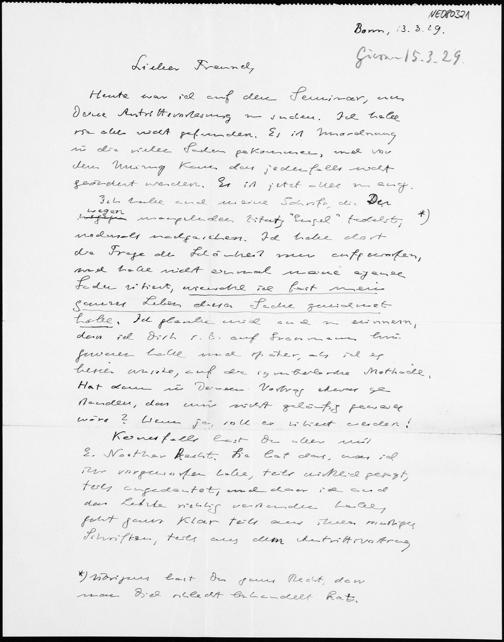 NE080321
Bonn, 13.3.29.
15.3.29.
Lieber Freund,
Heute war ich auf dem Seminar, um
Deine Antrittsvorlesung zu suchen. Ich habe
sie aber nicht gefunden. Es ist Unordnung
in die vielen Sachen gekommen, und vor
dem Umzug kann das jedenfalls nicht
geändert werden. Es ist jetzt alles zu eng.
Ich habe auch meine Schrift, die Du
wegen mangelnder Zitate "Engel" tadelst, *)
nochmals nachgesehen. Ich habe dort
die Frage der Schönheit nur aufgeworfen,
und habe nicht einmal meine eigenen
Sachen zitiert, wiewohl ich fast mein
ganzes Leben dieser Sache gewidmet
habe. Ich glaube mich auch zu erinnern,
dass ich Dich z.B. auf hin-
gewiesen habe und später, als ich es
besser wusste, auf die symbolische Methode.
Hat denn in Deinem Vortrag etwas ge-
standen, das mir nicht geläufig gewesen
wäre? Wenn ja, soll er zitiert werden!
Keinesfalls hast Du aber mit
E. Noether Recht. Sie hat das, was ich
ihr vorgeworfen habe, teils wirklich gesagt,
teils angedeutet, und dass ich auch
das Letzte richtig verstanden habe,
geht ganz klar teils aus ihren
Schriften, teils aus dem Antrittsvortrag
*) Übrigens hast Du ganz Recht, dass
man Dich schlecht behandelt hat.